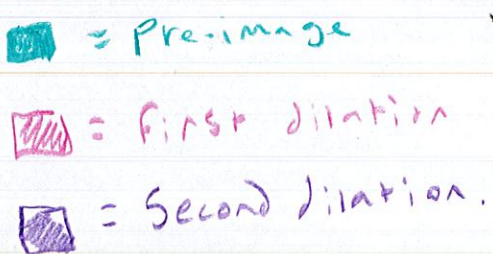 = Pre-image
= First dilation
= Second dilation.